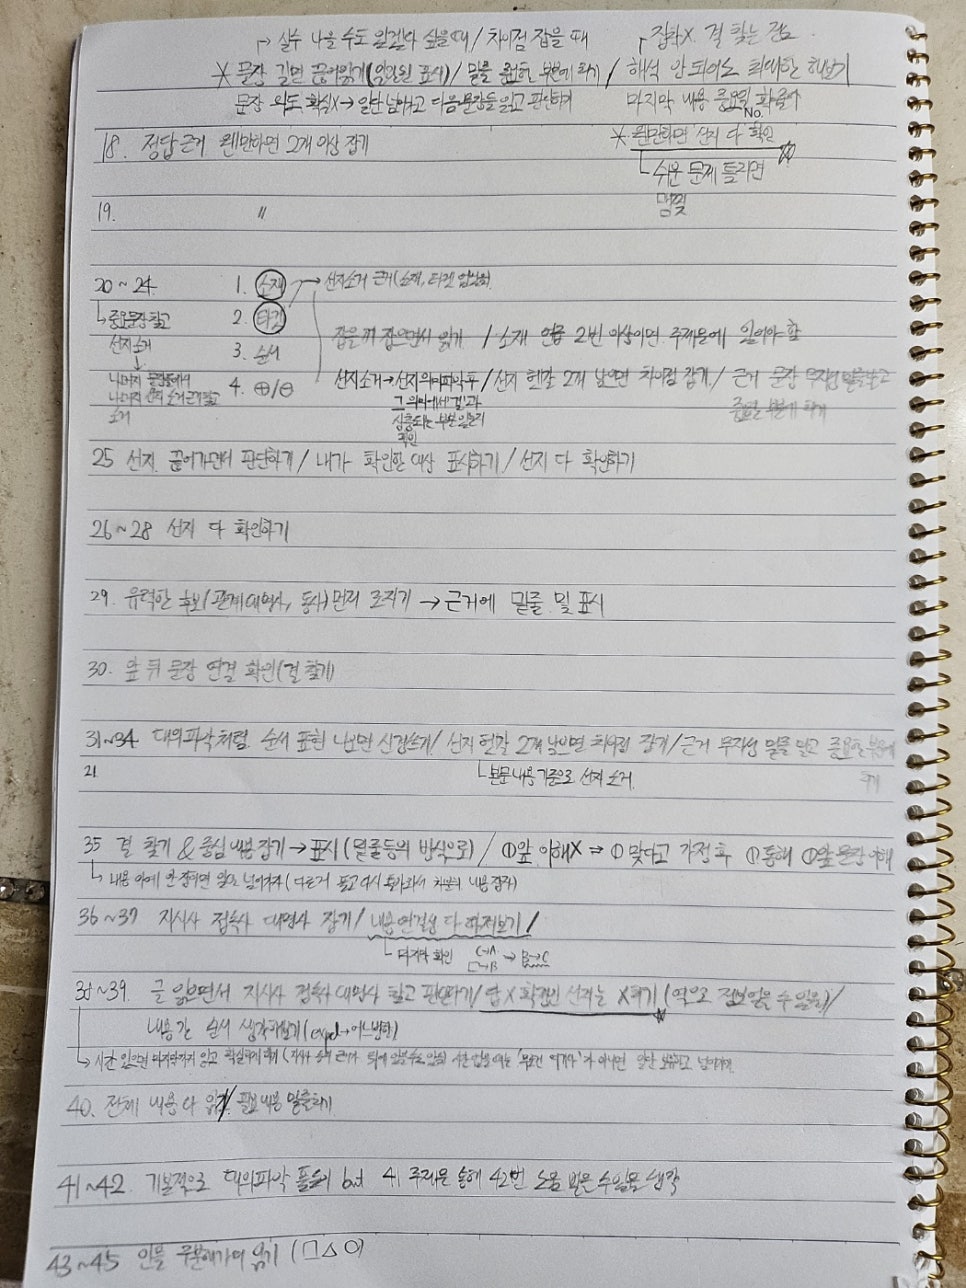 → 실수 나올 수도 있겠다 싶을 때 / 차이점 잡을 때
→ 집착X. 결 찾는 정도
* 문장 길면 끊어읽기 ( 표시) / 밑줄 필요한 부분에 하기 / 해석 안 되어도 최대한 해보기
문장 와도 확실X → 일단 넘어가고 다음 문장들 읽고 판단하기
마지막 내용 중요할 확률이
No.
* 웬만하면 선지 다 확인
18. 정답 근거 웬만하면 2개 이상 잡기
↳ 쉬운 문제 틀리면
19. "
20~24
1. 소재 → 선지소거 근거(소재, 타겟
↳ 중요문장 찾고
2. 타겟
선지소거
잡을 꺼 잡으면서 읽기 / 소재 언급 2번 이상이면 주제문에 있어야 함
3. 순서
4. ⊕/⊖
선지소거 → 선지의미파악 후 / 선지 헷갈 2개 남으면 차이점 잡기 / 근거 문장 무지성 밑줄 말고
나머지 선지 소거 근거 찾고
소거
그 의미에서 '결'과
상충되는 부분 있는지
확인
중요한 부분에 하기
25 선지 끊어가면서 판단하기 / 내가 확인한 대상 표시하기 / 선지 다 확인하기
26~28 선지 다 확인하기
29. 유력한 후보(관계대명사, 동사) 먼저 조지기 → 근거에 밑줄 및 표시
30. 앞 뒤 문장 연결 확인(결 찾기)
31~34 대의파악처럼 순서 표현 나오면 신경쓰기 / 선지 헷갈 2개 남으면 차이점 잡기 / 근거 무지성 밑줄 말고 중요한 부분에
21
↳ 본문내용 기준으로 선지 소거
하기
35 결 찾기 & 중심내용 잡기 → 표시(밑줄 등의 방식으로) / ①앞 이해X ⇒ ① 맞다고 가정 후 ① 통해 ①앞 문장 이해
↳ 내용 아예 안 잡히면 일단 넘어가자( 다른거 풀고 다시 돌아와서 차분히 내용 잡자)
36~37 지시사 접속사 대명사 잡기 / 내용 연결성 다 따져보기 /
↳ 마지막 확인 C→A C→B → B→C
38~39. 글 읽으면서 지시사 접속사 대명사 찾고 판단하기 / 답X 확정인 선지는 X하기 (역으로 정보얻을 수 있음) /
내용 간 순서 생각해보기(
↳ 시간 있으면 마지막까지 읽고 확실하게 하기
40. 전체 내용 다 읽기 / 필요내용 밑줄하기
41~42 기본적으로 대의파악 풀이 but 41 주제문 통해 42번 도움 받을 수 있음 생각
43~45 인물 구분해가며 읽기 (□△○)